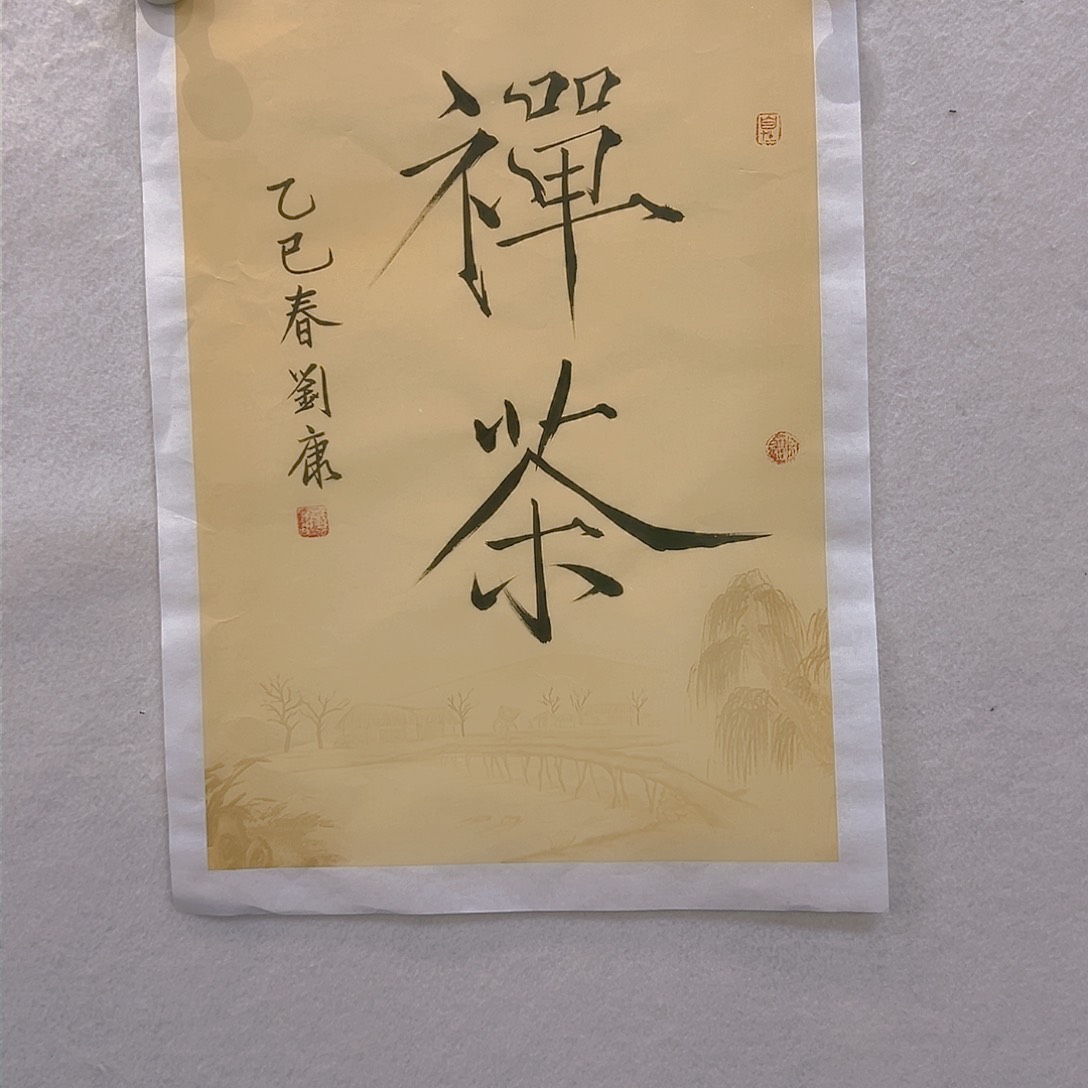 禪茶
乙巳春劉康